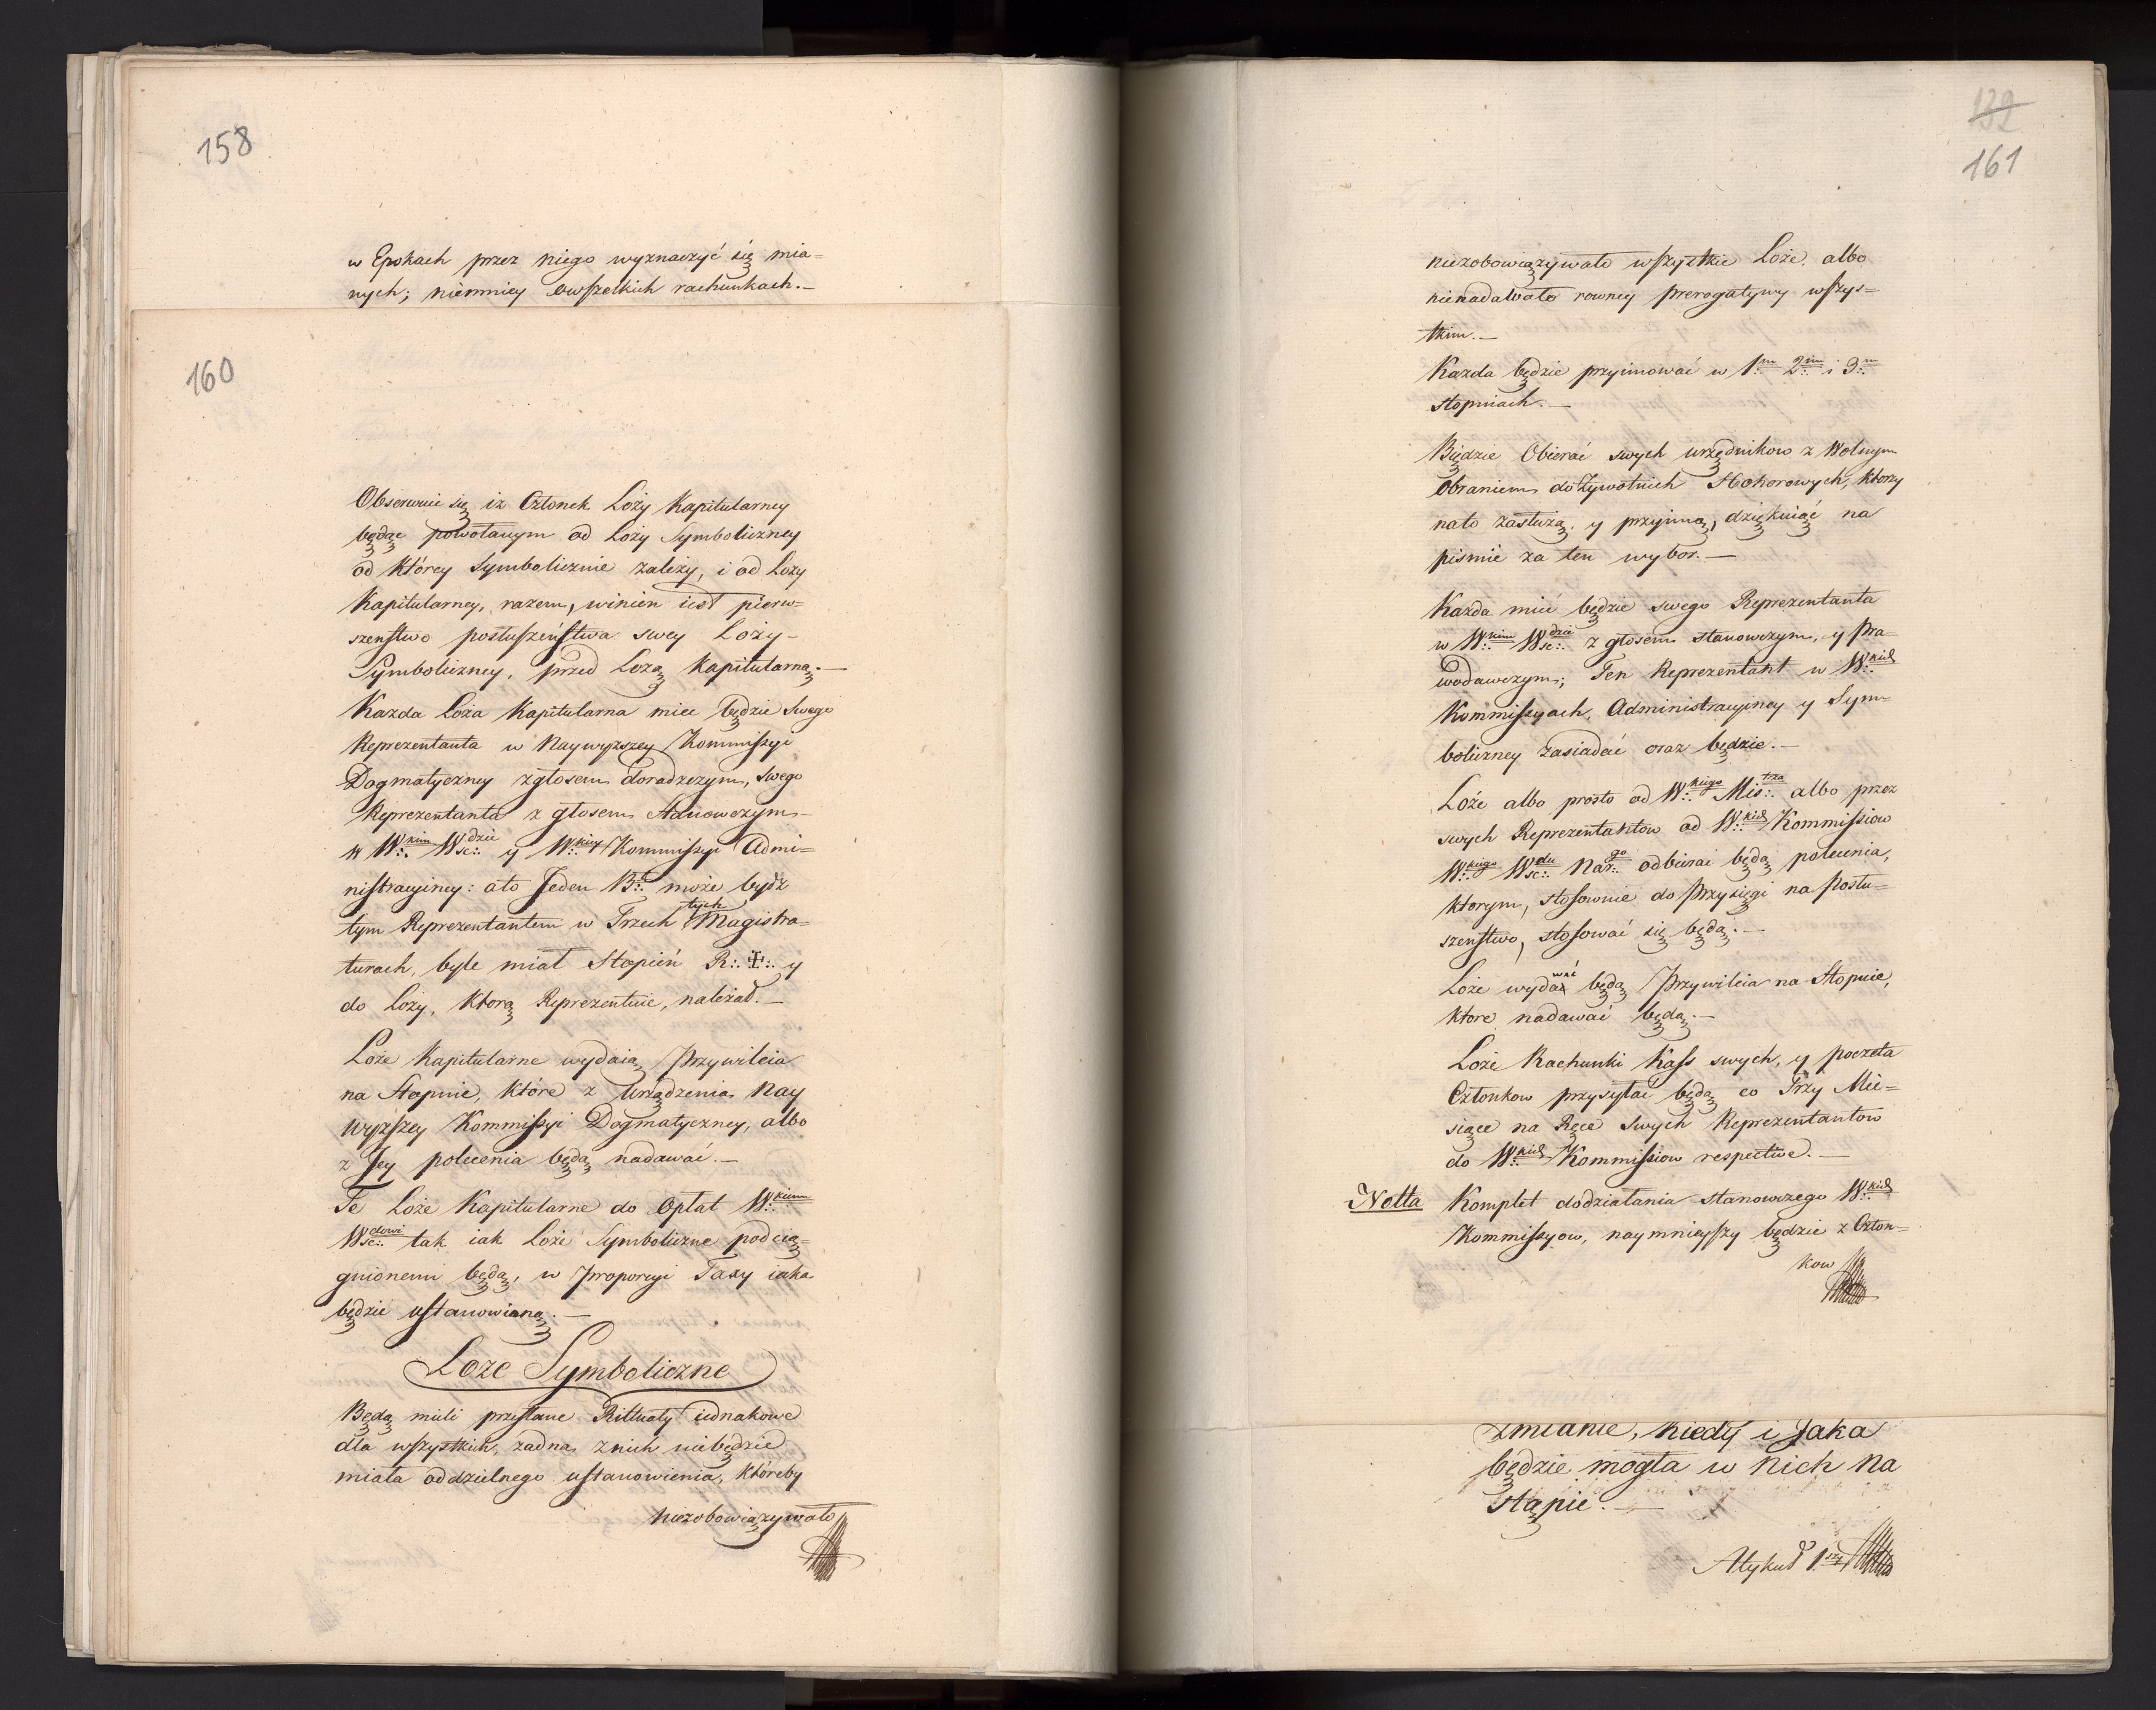 158
w Epokach przez niego wyznaczyć się mia=
nych; niemniey owszelkich rachunkach.—
160
Obserwuie się iz Członek Loży Kapitularney
będąc powołanym od Loży Symboliczney
od którey Symbolicznie zależy, i od Loży
Kapitularney, razem, winien iest pierw=
szenstwo posłuszeństwa swey Loży-
Symboliczney, przed Lozą Kapitularną.—
Kazda Loża Kapitularna miec będzie Swego
Reprezentanta w Naywyzszey Kommissyi
Dogmatyczney z głosem doradzczym, Swego
Reprezentanta z głosem Stanowczym-
w W∴kim Wsc∴dzie y W∴kiey Kommissyi Admi=
nistracyiney: ato Jeden B∴t może bydz
tym Reprezentantem w Trzech tych Magistra=
turach, byle miał Stopień R∴ ✠∴ y
do Loży, którą Reprezentuie, należał.—
Loże Kapitularne wydaią Przywileia
na Stopnie, które z Urządzenia Nay
wyzszey Kommissyi Dogmatyczney, albo
z Jey polecenia będą nadawać.—
Te Loże Kapitularne do Opłat W∴kiemu
Wsc∴dowi tak iak Loże Symboliczne podcią=
gnionemi będą, w proporcyi Taxy iaka
będzie ustanowioną.—
Loze Symboliczne
Będą mieli przesłane Rittuały iednakowe
dla wszystkich, zadna z nich niebędzie
miała oddzielnego ustanowienia, któreby
niezobowiązywało
132
161
niezobowiązywało wszystkie Loże, albo
nienadawało rowney prerogatywy wszys=
tkim.—
Kazda będzie przyimować w 1m 2im i 3m
stopniach.—
Będzie Obierać swych urzędnikow z Wolnym
Obraniem dożywotnich Honorowych, ktorzy
nato zasłużą, y przyimą, dziękuiąc na
pismie za ten wybor.—
Kazda mieć będzie swego Reprezentanta
w W∴kim Wsc∴dzie z głosem stanowczym, y Pra=
wodawczym; Ten Reprezentant w W∴kich
Kommissyach, Administracyiney y Sym=
boliczney zasiadać oraz będzie.—
Loże albo prosto od W∴kiego Mis∴trza albo przez
swych Reprezentantow od W∴kich Kommissiow
W∴kiego Wsc∴du Nar∴go odbierać będą polecenia,
ktorym, stosownie do Przysięgi na Posłu=
szenstwo, stosować się będą.—
Loże wydawać będą Przywileia na Stopnie,
ktore nadawać będą.—
Loże Rachunki Kass swych, y poczeta
Członkow przysyłać będą co Trzy Mie=
siące na Ręce Swych Reprezentantow
do W∴kich Kommissiow respective.—
Notta Komplet do działania stanowczego W∴kich
Kommissyow, naymnieyszy będzie z Człon=
kow
zmianie, kiedy i Jaka
będzie mogła w nich na
stąpie.—
Atykuł 1szy